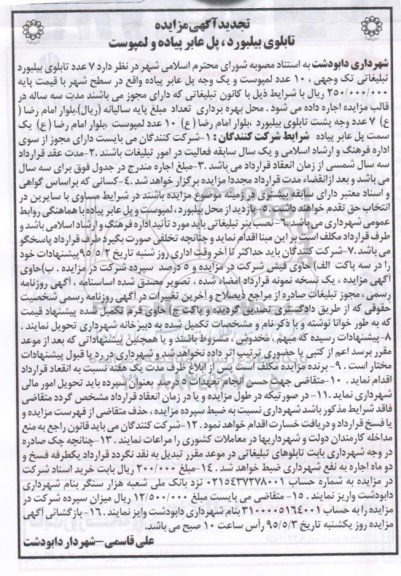 تجدیدآگهی مزایده
تابلوی بیلبورد، پل عابر پیاده و لمپوست
شهرداری دابودشت به استناد مصوبه شورای محترم اسلامی شهر در نظر دارد ۷ عدد تابلوی بیلبورد
تبلیغاتی تک وجهی، ۱۰ عدد لمپوست و یک وجه پل عابر پیاده واقع در سطح شهر با قیمت پایه
۲۵۰/۰۰۰/۰۰۰ ریال با شرایط ذیل با کانون تبلیغاتی که دارای مجوز می باشند مدت سه ساله در
قالب مزایده اجاره داده می شود. محل بهره برداری تعداد مبلغ پایه سالیانه (ریال). بلوار امام رضا (
ع) ۷ عدد وجه پشت تابلوی بیلبورد ،بلوار امام رضا (ع) ۱۰ عدد لمپوست ،بلوار امام رضا (ع) یک
سمت پل عابر پیاده شرایط شرکت کنندگان: ۱-شرکت کنندگان می بایست دارای مجوز از سوی
اداره فرهنگ و ارشاد اسلامی و یک سال سابقه فعالیت در امور تبلیغات باشند. ۲-مدت عقد قرارداد
سه سال شمسی از زمان انعقاد قرارداد می باشد. ۳-مبلغ اجاره مندرج در جدول فوق برای سه سال
می باشد و بعد از انقضاء مدت قرارداد مجددا مزایده برگزار خواهد شد. ۴-کسانی که براساس گواهی
و اسناد معتبر دارای سابقه بیشتری در زمینه موضوع مزایده باشند در شرایط مساوی با سایرین در
انتخاب حق تقدم خواهند داشت. ۵-بازدید از محل بیلبورد، لمپوست و پل عابر پیاده با هماهنگی روابط
عمومی شهرداری می باشد. ۶-نصب بنر تبلیغاتی باید مورد تأیید اداره فرهنگ و ارشاد اسلامی باشد و
طرف قرارداد مکلف است بر این مبنا اقدام نماید و چنانچه تخلفی صورت بگیرد طرف قرارداد پاسخگو
می باشد. ۷-شرکت کنندگان باید حداکثر تا آخر وقت اداری روز شنبه تاریخ ۹۵/۵/۲ پیشنهادات خود
را در سه پاکت الف) حاوی فیش شرکت در مزایده و ۵ درصد سپرده شرکت در مزایده . ب)حاوی
آگهی مزایده ، یک نسخه نمونه قرارداد امضاء شده ، تصویر مصدق شده اساسنامه ، آگهی روزنامه
رسمی ، مجوز تبلیغات صادره از مراجع ذیصلاح و آخرین تغییرات در آگهی روزنامه رسمی شخصیت
حقوقی که از طریق دادگستری تصدیق گردیده و پاکت ج) حاوی فرم تکمیل شده پیشنهاد قیمت
که به طور خوانا نوشته و با ذکر نام و مشخصات تکمیل شده به دبیرخانه شهرداری تحویل نمایند .
۸-پیشنهادات رسیده که مبهم ، مخدوش ، مشروط باشند و یا همچنین پیشنهاداتی که بعد از موعد
مقرر برسد اعم از کتبی یا حضوری ترتیب اثر داده نخواهد شد و شهرداری در رد یا قبول پیشنهادات
مختار است . ۹- برنده مزایده مکلف است پس از ابلاغ ظرف مدت یک هفته نسبت به انعقاد قرارداد
اقدام نماید . ۱۰-متقاضی جهت حسن انجام تعهدات نیز ۵ درصد بعنوان سپرده باید تحویل امور مالی
شهرداری نماید. ۱۱- در صورتیکه در طول مزایده و یا در زمان انعقاد قرارداد مشخص گردد متقاضی
فاقد شرایط مذکور باشد شهرداری نسبت به ضبط سپرده مزایده ، حذف متقاضی از فهرست مزایده و
یا فسخ قرارداد و دریافت خسارت اقدام خواهد نمود. ۱۲-شرکت کنندگان می باید قانون راجع به منع
مداخله کارمندان دولت و شهرداریها در معاملات کشوری را مراعات نمایند. ۱۳-چنانچه چک صادره
در وجه شهرداری بابت تابلوهای تبلیغاتی در موعد مقرر تبدیل به نقد نگردد قرارداد یکطرفه فسخ و
دو ماه اجاره به نفع شهرداری ضبط خواهد شد . ۱۴-مبلغ ۲۰۰/۰۰۰ ریال بابت خرید اسناد شرکت
در مزایده به شماره حساب ۰۲۱۵۴۳۷۳۷۸۰۰۱ نزد بانک ملی شعبه هزار سنگر بنام شهرداری
دابودشت واریز نمایند . ۱۵- متقاضی می بایست مبلغ ۱۲/۵۰۰/۰۰۰ ریال میزان سپرده شرکت در
مزایده را به حساب ۳۱۰۰۰۰۵۱۶۴۰۰۱ بنام شهرداری دابودشت واریز نمایند. ۱۶- بازگشائی آگهی
مزایده روز یکشنبه تاریخ ۹۵/۵/۳ رأس ساعت ۱۰ صبح می باشد.
علی قاسمی-شهردار دابودشت